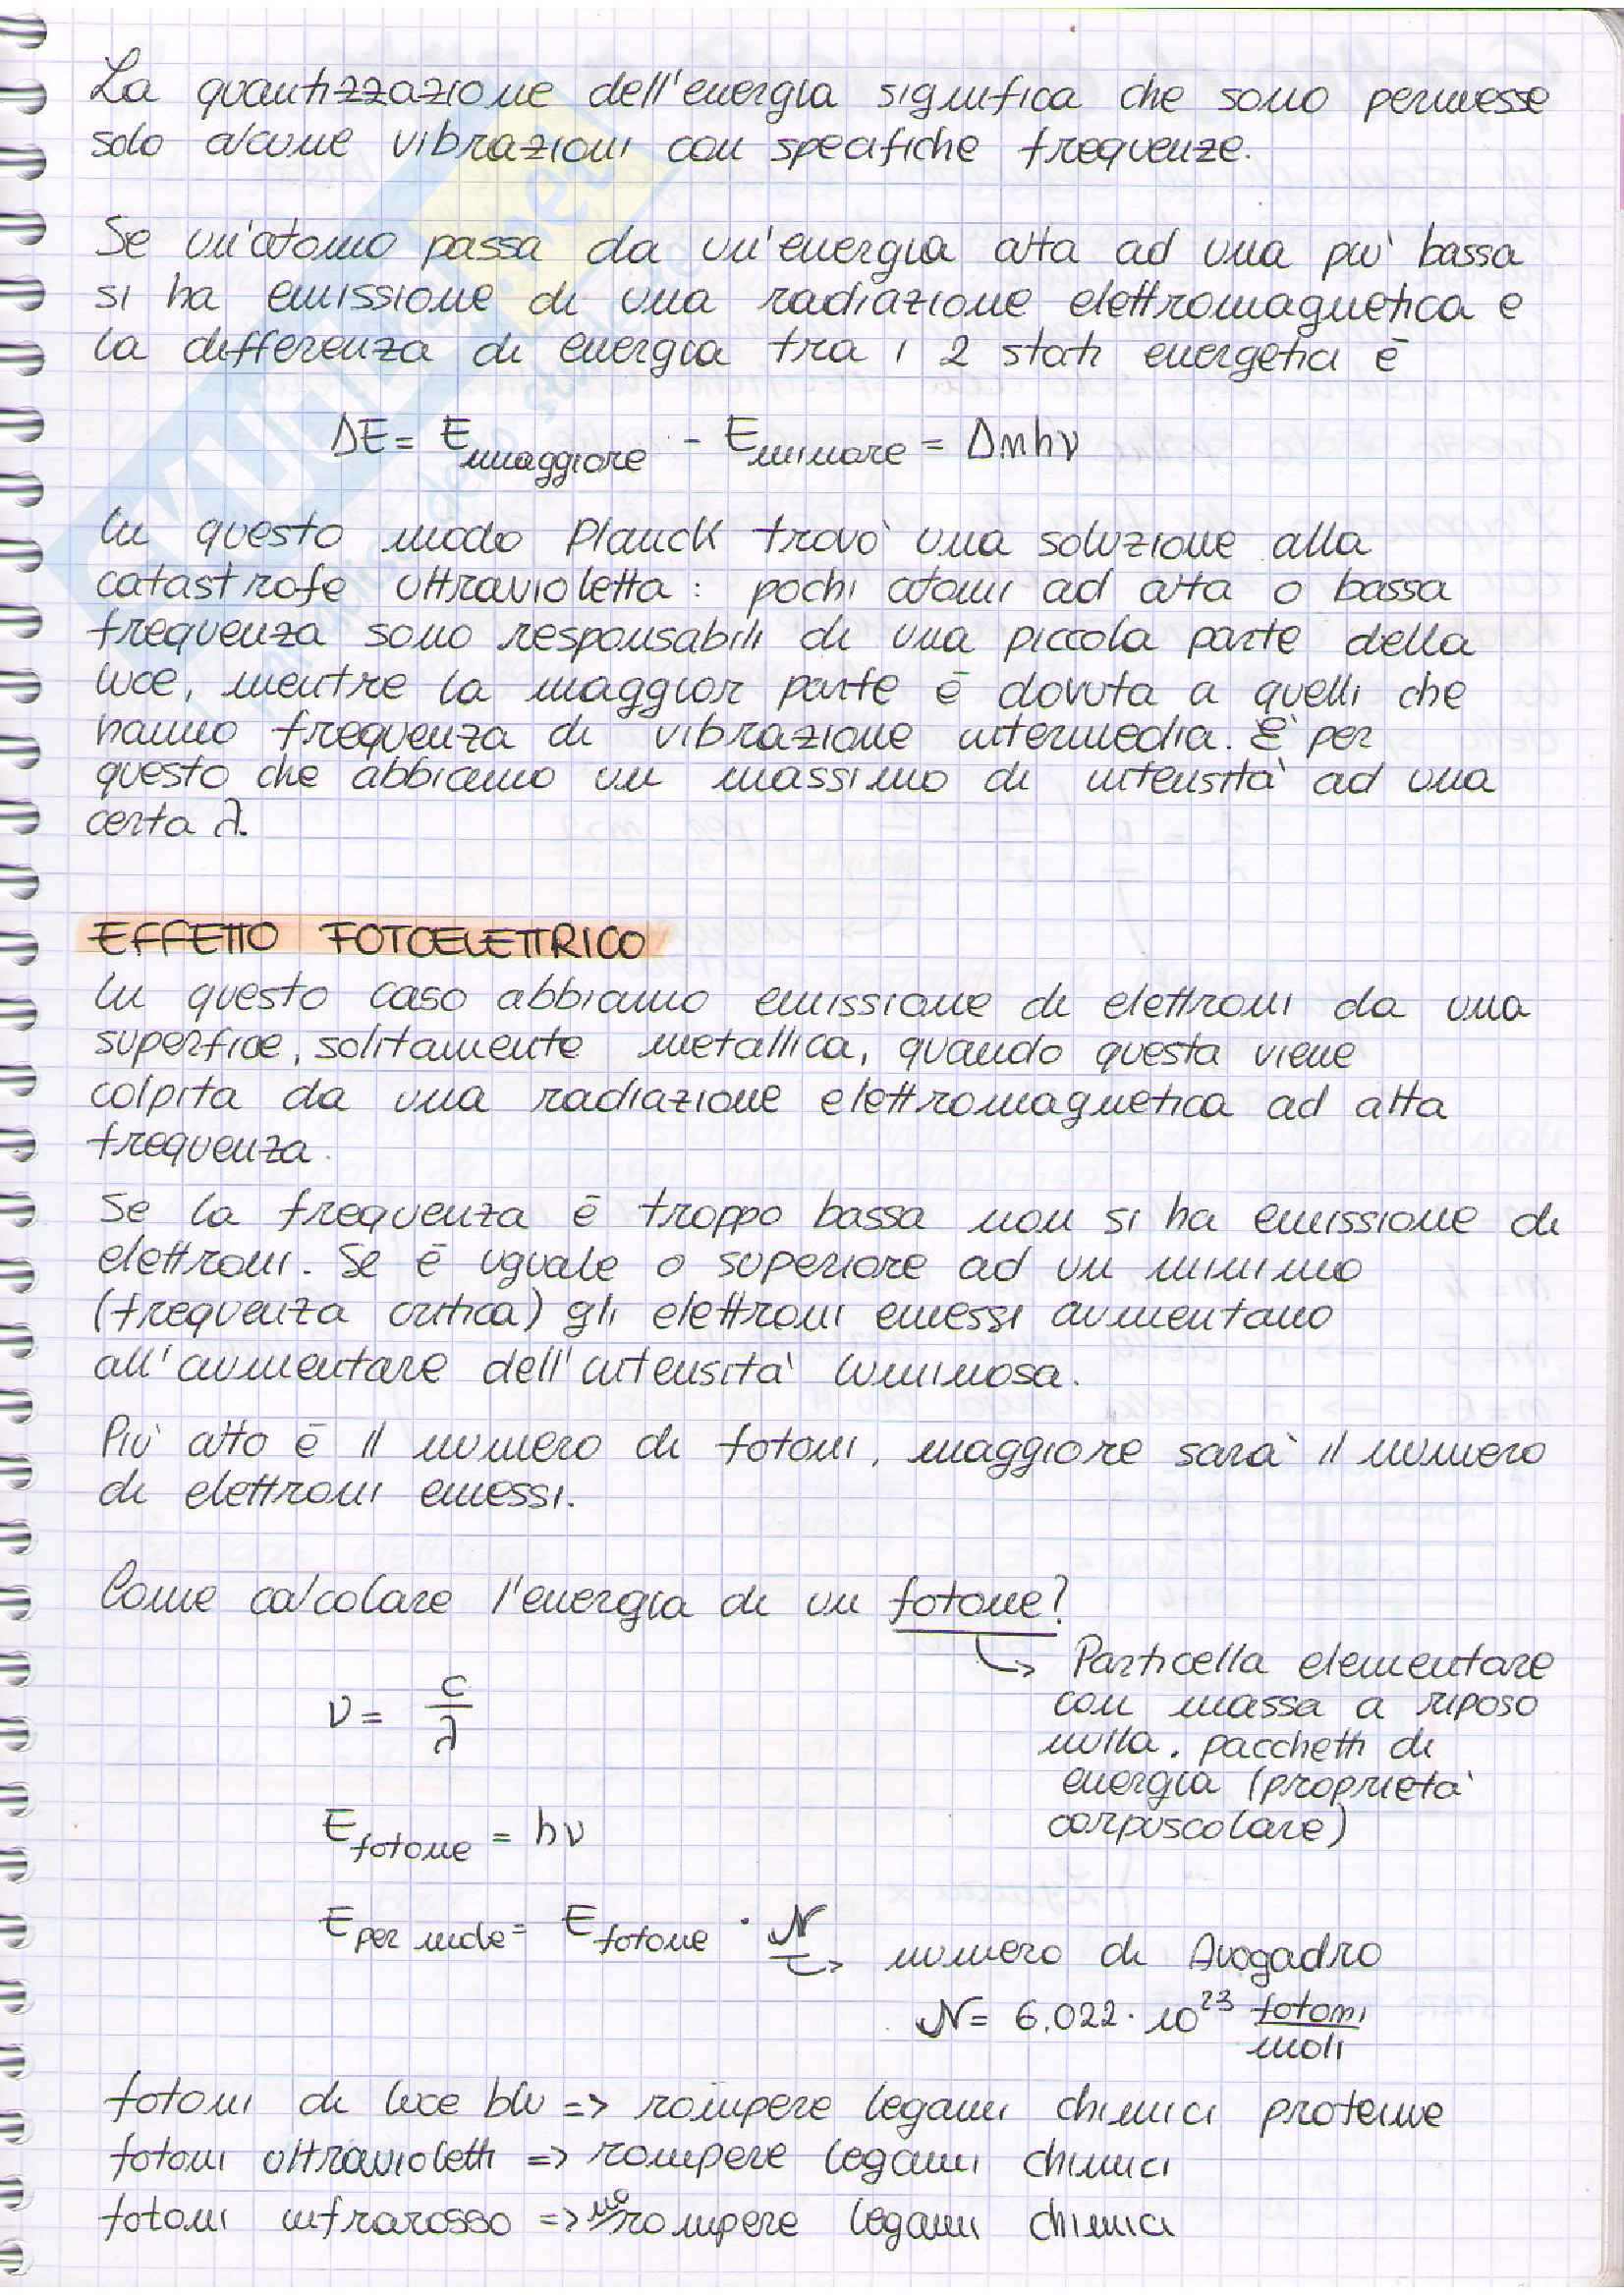 La quantizzazione dell'energia significa che sono permesse
solo alcune vibrazioni con specifiche frequenze.
Se un'atomo passa da un'energia alta ad una più bassa
si ha emissione di una radiazione elettromagnetica e
la differenza di energia tra i 2 stati energetici è
ΔE = E maggiore - E minore = Δnhν
In questo modo Planck trovò una soluzione alla
catastrofe ultravioletta: pochi atomi ad alta o bassa
frequenza sono responsabili di una piccola parte della
luce, mentre la maggior parte è dovuta a quelli che
hanno frequenza di vibrazione intermedia. È per
questo che abbiamo un massimo di intensità ad una
certa λ.
EFFETTO FOTOELETTRICO
In questo caso abbiamo emissione di elettroni da una
superfice, solitamente metallica, quando questa viene
colpita da una radiazione elettromagnetica ad alta
frequenza.
Se la frequenza è troppo bassa non si ha emissione di
elettroni. Se è uguale o superiore ad un minimo
(frequenza critica) gli elettroni emessi aumentano
all'aumentare dell'intensità luminosa.
Più alto è il numero di fotoni, maggiore sarà il numero
di elettroni emessi.
Come calcolare l'energia di un fotone?
→ Particella elementare
con massa a riposo
nulla, pacchetti di
energia (proprietà
corpuscolare)
ν = c/λ
E fotone = hν
E per mole = E fotone · N → numero di Avogadro
N = 6,022 · 10²³ fotoni/moli
fotoni di luce blu => rompere legami chimici proteine
fotoni ultravioletti => rompere legami chimici
fotoni infrarosso => no rompere legami chimici